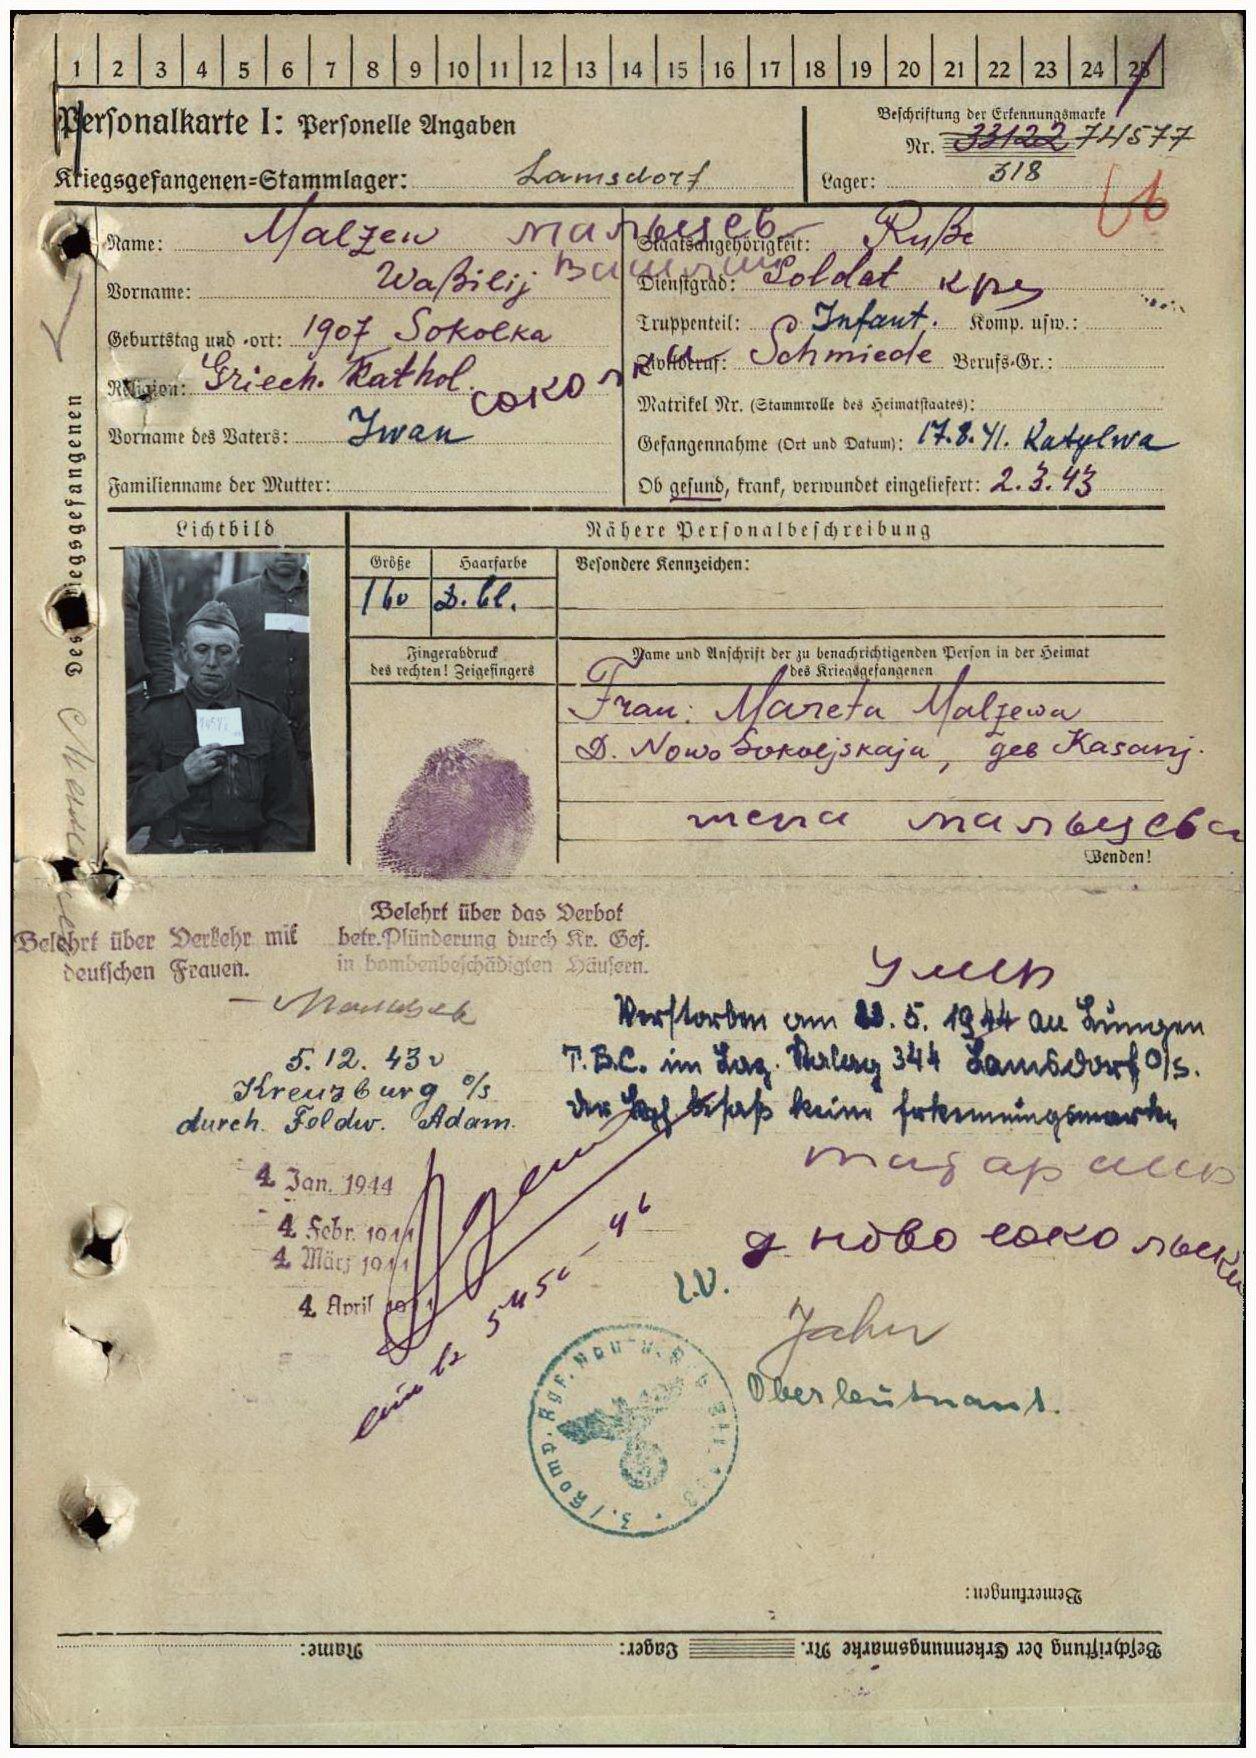 1 2 3 4 5 6 7 8 9 10 11 12 13 14 15 16 17 18 19 20 21 22 23 24 25
Personalkarte I: Personelle Angaben
Beschriftung der Erkennungsmarke
Nr. 33122 74577
Kriegsgefangenen=Stammlager: Lamsdorf
Lager: 318
Name: Malzew Мальцев
Staatsangehörigkeit: Ruße
Vorname: Waßilij
Dienstgrad: Soldat
Geburtstag und -ort: 1907 Sokolka
Truppenteil: Infant. Komp. usw.:
Religion: Griech. Kathol.
Zivilberuf: Schmiede Berufs-Gr.:
Matrikel Nr. (Stammrolle des Heimatstaates):
Vorname des Vaters: Iwan
Gefangennahme (Ort und Datum): 17.8.41. Katylwa
Familienname der Mutter:
Ob gesund, krank, verwundet eingeliefert: 2.3.43
Des Kriegsgefangenen
Lichtbild
Nähere Personalbeschreibung
Größe Haarfarbe Besondere Kennzeichen:
160 D. bl.
Fingerabdruck
des rechten! Zeigefingers
Name und Anschrift der zu benachrichtigenden Person in der Heimat
des Kriegsgefangenen
Frau: Mareta Malzewa
D. Nowo Sokoljskaja, geb Kasanj.
жена Мальцева
Wenden!
Belehrt über Verkehr mit
deutschen Frauen.
Belehrt über das Verbot
betr. Plünderung durch Kr. Gef.
in bombenbeschädigten Häusern.
умер
Verstorben am 5. 1944 an Lungen
T.B.C. im Laz. Stalag 344 Lamsdorf O/S.
der besaß keine Erkennungsmarke
5. 12. 43
Kreuzburg O/S
durch Feldw. Adam.
4. Jan. 1944
4. Febr. 1944
4. März 1944
4. April 1944
д ново
I.V.
Jahn
Oberleutnant.
Bemerkungen:
Beschriftung der Erkennungsmarke Nr. Lager: Name: